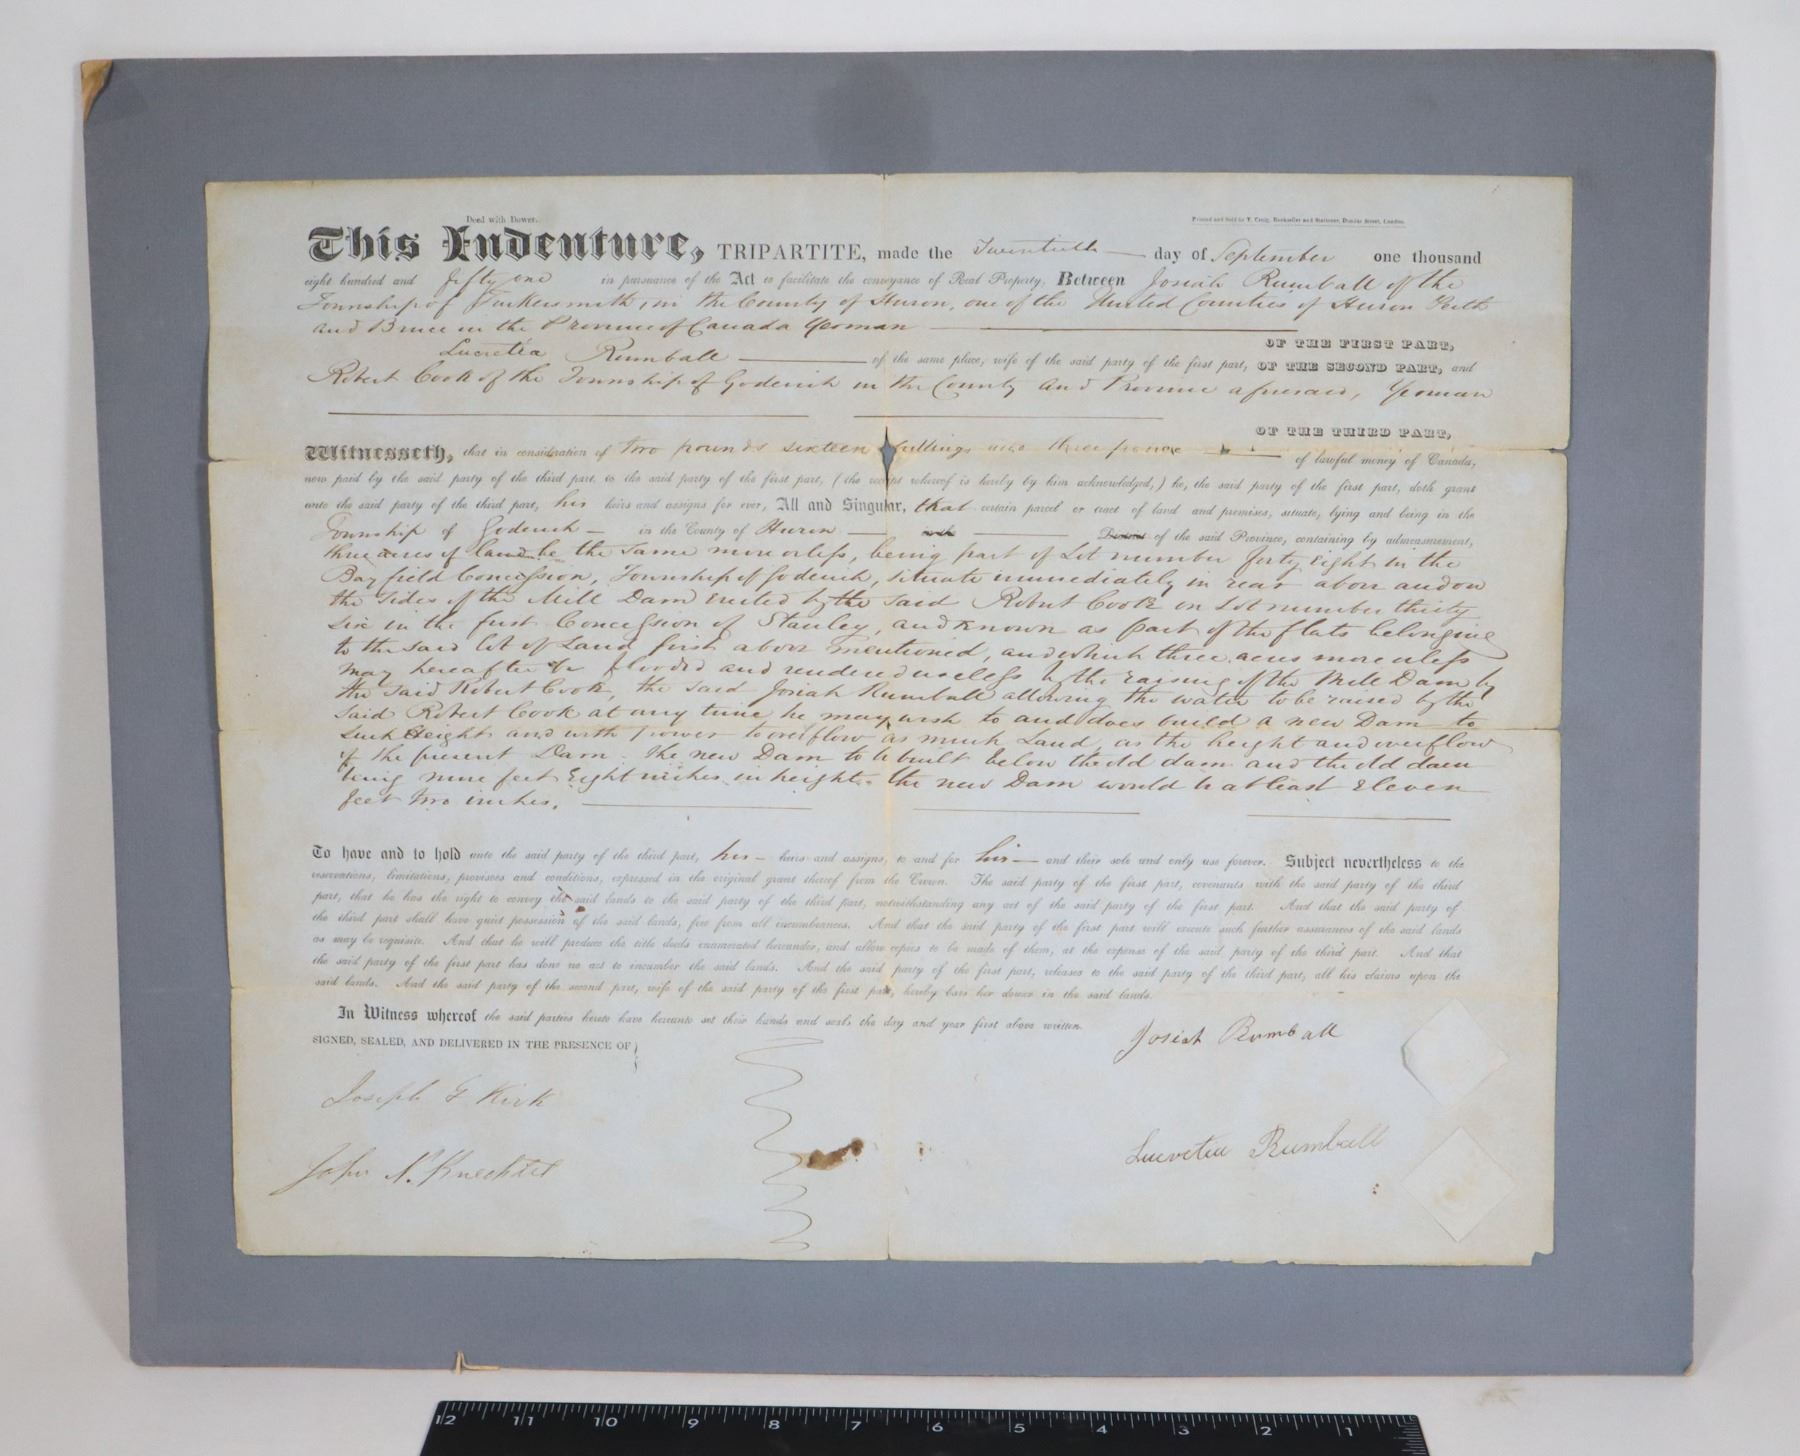 Deed with Dower.
Printed and Sold by T. Craig, Bookseller and Stationer, Dundas Street, London.
This Indenture, TRIPARTITE, made the Twentieth day of September one thousand
eight hundred and fifty one in pursuance of the Act to facilitate the conveyance of Real Property, Between Josiah Rumball of the
Township of Tuckersmith, in the County of Huron, one of the United Counties of Huron Perth
and Bruce in the Province of Canada Yeoman
OF THE FIRST PART,
Lucretia Rumball of the same place, wife of the said party of the first part, OF THE SECOND PART, and
Robert Cook of the Township of Goderich in the County and Province aforesaid, Yeoman
OF THE THIRD PART,
Witnesseth, that in consideration of two pounds sixteen shillings and three pence of lawful money of Canada,
now paid by the said party of the third part, to the said party of the first part, (the receipt whereof is hereby by him acknowledged,) he, the said party of the first part, doth grant
unto the said party of the third part, his heirs and assigns for ever, All and Singular, that certain parcel or tract of land and premises, situate, lying and being in the
Township of Goderich in the County of Huron in the District of the said Province, containing by admeasurement,
three acres of land be the same more or less, being part of Lot number forty eight in the
Bayfield Concession, Township of Goderich, situate immediately in rear above and on
the sides of the Mill Dam erected by the said Robert Cook on Lot number thirty
six in the first Concession of Stanley, and known as part of the flats belonging
to the said lot of Land first above mentioned, and which three acres more or less
may hereafter be flooded and rendered useless by the raising of the Mill Dam by
the said Robert Cook, the said Josiah Rumball allowing the water to be raised by the
said Robert Cook at any time he may wish to and does build a new Dam to
such height and with power to overflow as much Land, as the height and overflow
of the present Dam. the new Dam to be built below the old dam and the old dam
being nine feet Eight inches in height. the new Dam would be at least Eleven
feet two inches.
To have and to hold unto the said party of the third part, his heirs and assigns, to and for his and their sole and only use forever. Subject nevertheless to the
reservations, limitations, provisoes and conditions, expressed in the original grant thereof from the Crown. The said party of the first part, covenants with the said party of the third
part, that he has the right to convey the said lands to the said party of the third part, notwithstanding any act of the said party of the first part. And that the said party of
the third part shall have quiet possession of the said lands, free from all incumbrances. And that the said party of the first part will execute such further assurances of the said lands
as may be requisite. And that he will produce the title deeds enumerated hereunder, and allow copies to be made of them, at the expense of the said party of the third part. And that
the said party of the first part has done no act to incumber the said lands. And the said party of the first part, releases to the said party of the third part, all his claims upon the
said lands. And the said party of the second part, wife of the said party of the first part, hereby bars her dower in the said lands.
In Witness whereof the said parties hereto have hereunto set their hands and seals the day and year first above written.
SIGNED, SEALED, AND DELIVERED IN THE PRESENCE OF
Josiah Rumball
Joseph G Kirk
Lucretia Rumball
John N. Knechtel
12 11 10 9 8 7 6 5 4 3 2 1